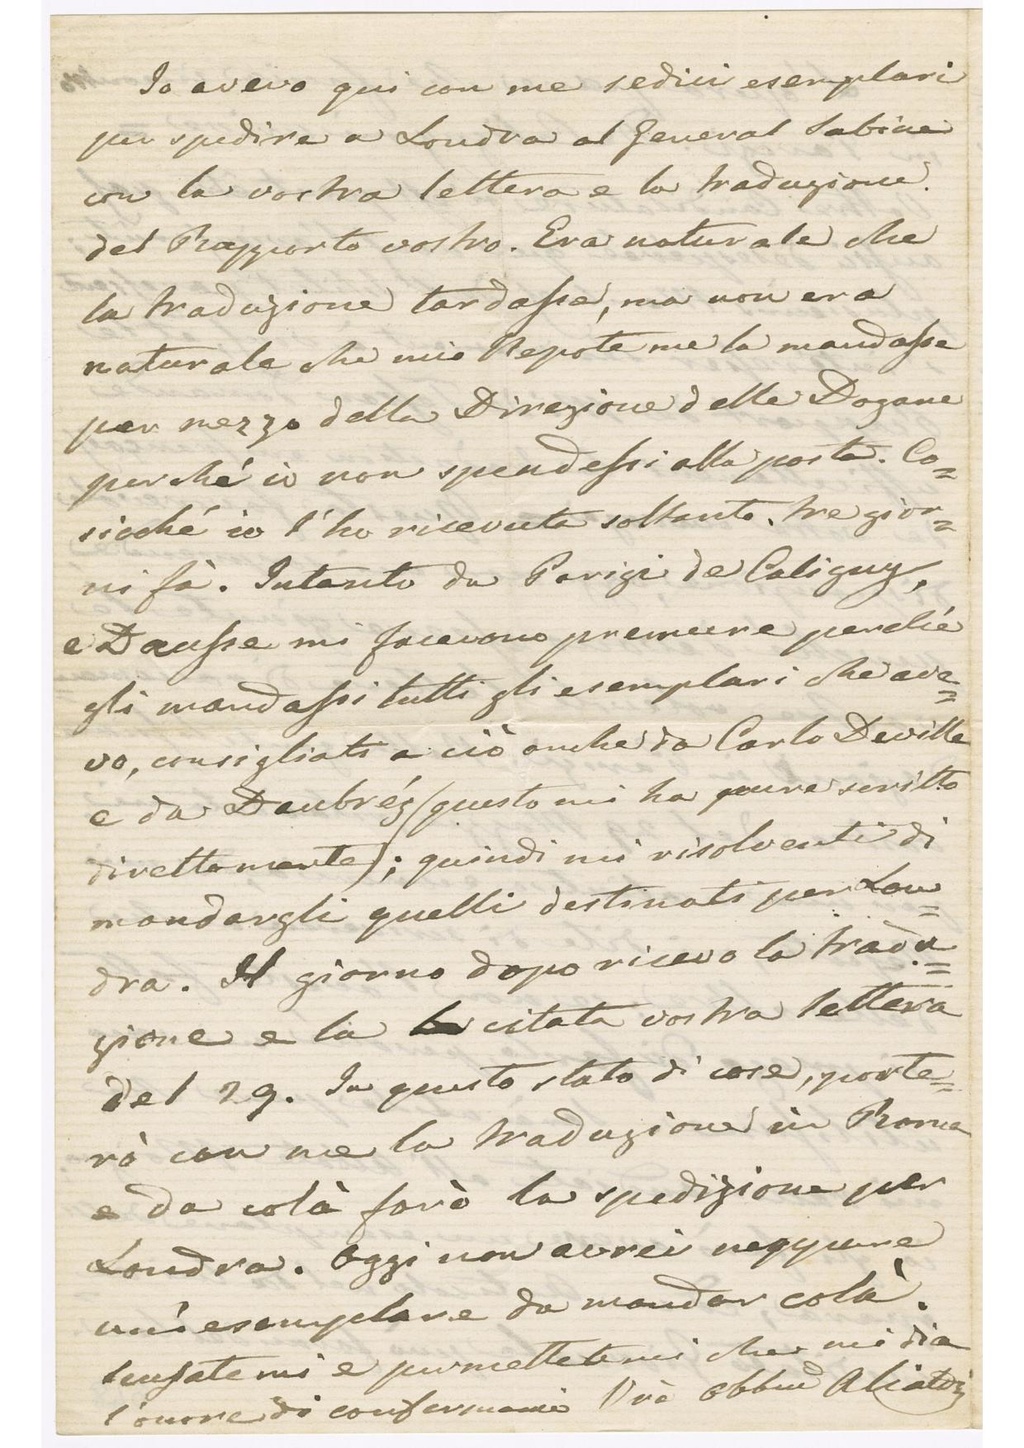 Io avevo qui con me sedici esemplari
per spedire a Londra al General Sabine
con la vostra lettera e la traduzione
del Rapporto vostro. Era naturale che
la traduzione tardasse, ma non era
naturale che mio Nepote me la mandasse
per mezzo della Direzione delle Dogane
perché io non spendessi alla posta. Co=
sicché io l'ho ricevuta soltanto tre gior=
ni fà. Intanto da Parigi de Caligny,
e Dausse mi facevano premure perché
gli mandassi tutti gli esemplari che ave=
vo, consigliato a ciò anche da Carlo Deville
e da Daubréz (questo mi ha pure scritto
direttamente); quindi mi risolventi di
mandargli quelli destinati per Lon=
dra. Il giorno dopo ricevo la tradu=
zione e la citata vostra lettera
del 29. In questo stato di cose, porte=
rò con me la traduzione in Roma
e da colà farò la spedizione per
Londra. Oggi non avrei neppure
un'esemplare da mandar colà.
Scusatemi e permettetemi che mi dia
l'onore di confermarmi Vro Obbmo